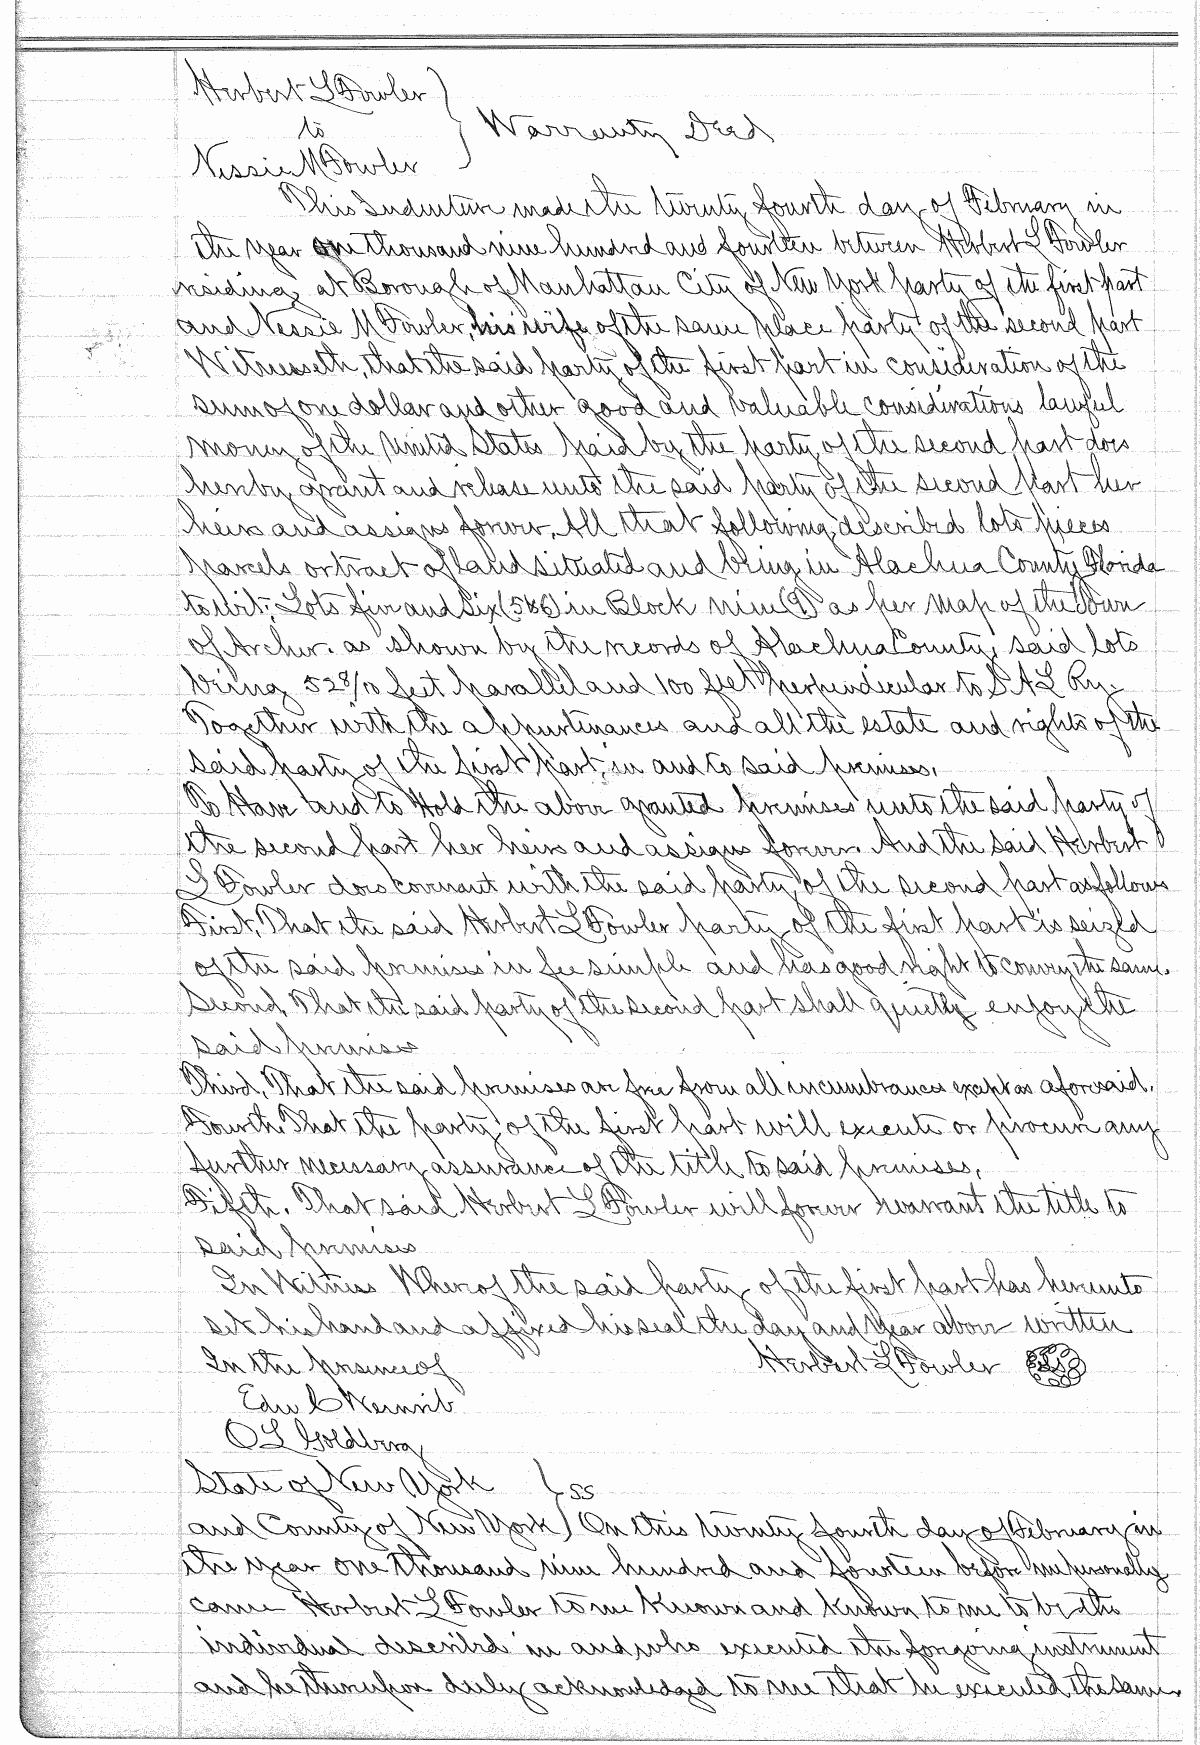 Herbert L Fowler
to
Warranty Deed
Nessie M Fowler
This Indenture made the twenty fourth day of February in
the year one thousand nine hundred and fourteen between Herbert L Fowler
residing at Borough of Manhattan City of New York party of the first part
and Nessie M Fowler, his wife of the same place party of the second part
Witnesseth, that the said party of the first part in consideration of the
sum of one dollar and other good and valuable considerations lawful
money of the United States paid by the party of the second part does
hereby grant and release unto the said party of the second part her
heirs and assigns forever, All that following described lots pieces
parcels or tract of land situated and being in Alachua County Florida
to wit; Lots five and six (5&6) in Block nine (9) as per map of the Town
of Archer. as shown by the records of Alachua County, said lots
being 52 8/10 feet parallel and 100 feet perpendicular to S A L Ry.
Together with the appurtenances and all the estate and rights of the
said party of the first part, in and to said premises.
To Have and to Hold the above granted premises unto the said party of
the second part her heirs and assigns forever. And the said Herbert
L Fowler does covenant with the said party of the second part as follows
First, That the said Herbert L Fowler party of the first part is seized
of the said premises in fee simple and has good right to convey the same.
Second, That the said party of the second part shall quietly enjoy the
said premises
Third, That the said premises are free from all incumbrances except as aforesaid.
Fourth. That the party of the first part will execute or procure any
further necessary assurance of the title to said premises,
Fifth. That said Herbert L Fowler will forever warrant the title to
said premises
In Witness Whereof the said party of the first part has hereunto
set his hand and affixed his seal the day and year above written
In the presence of Herbert L Fowler
Edw C Weinrib
O L Goldberg
State of New York } ss
and County of New York) On this twenty fourth day of February in
the year one thousand nine hundred and fourteen before me personally
came Herbert L Fowler to me known and known to me to be the
individual described in and who executed the forgoing instrument
and he thereupon duly acknowledged to me that he executed the same